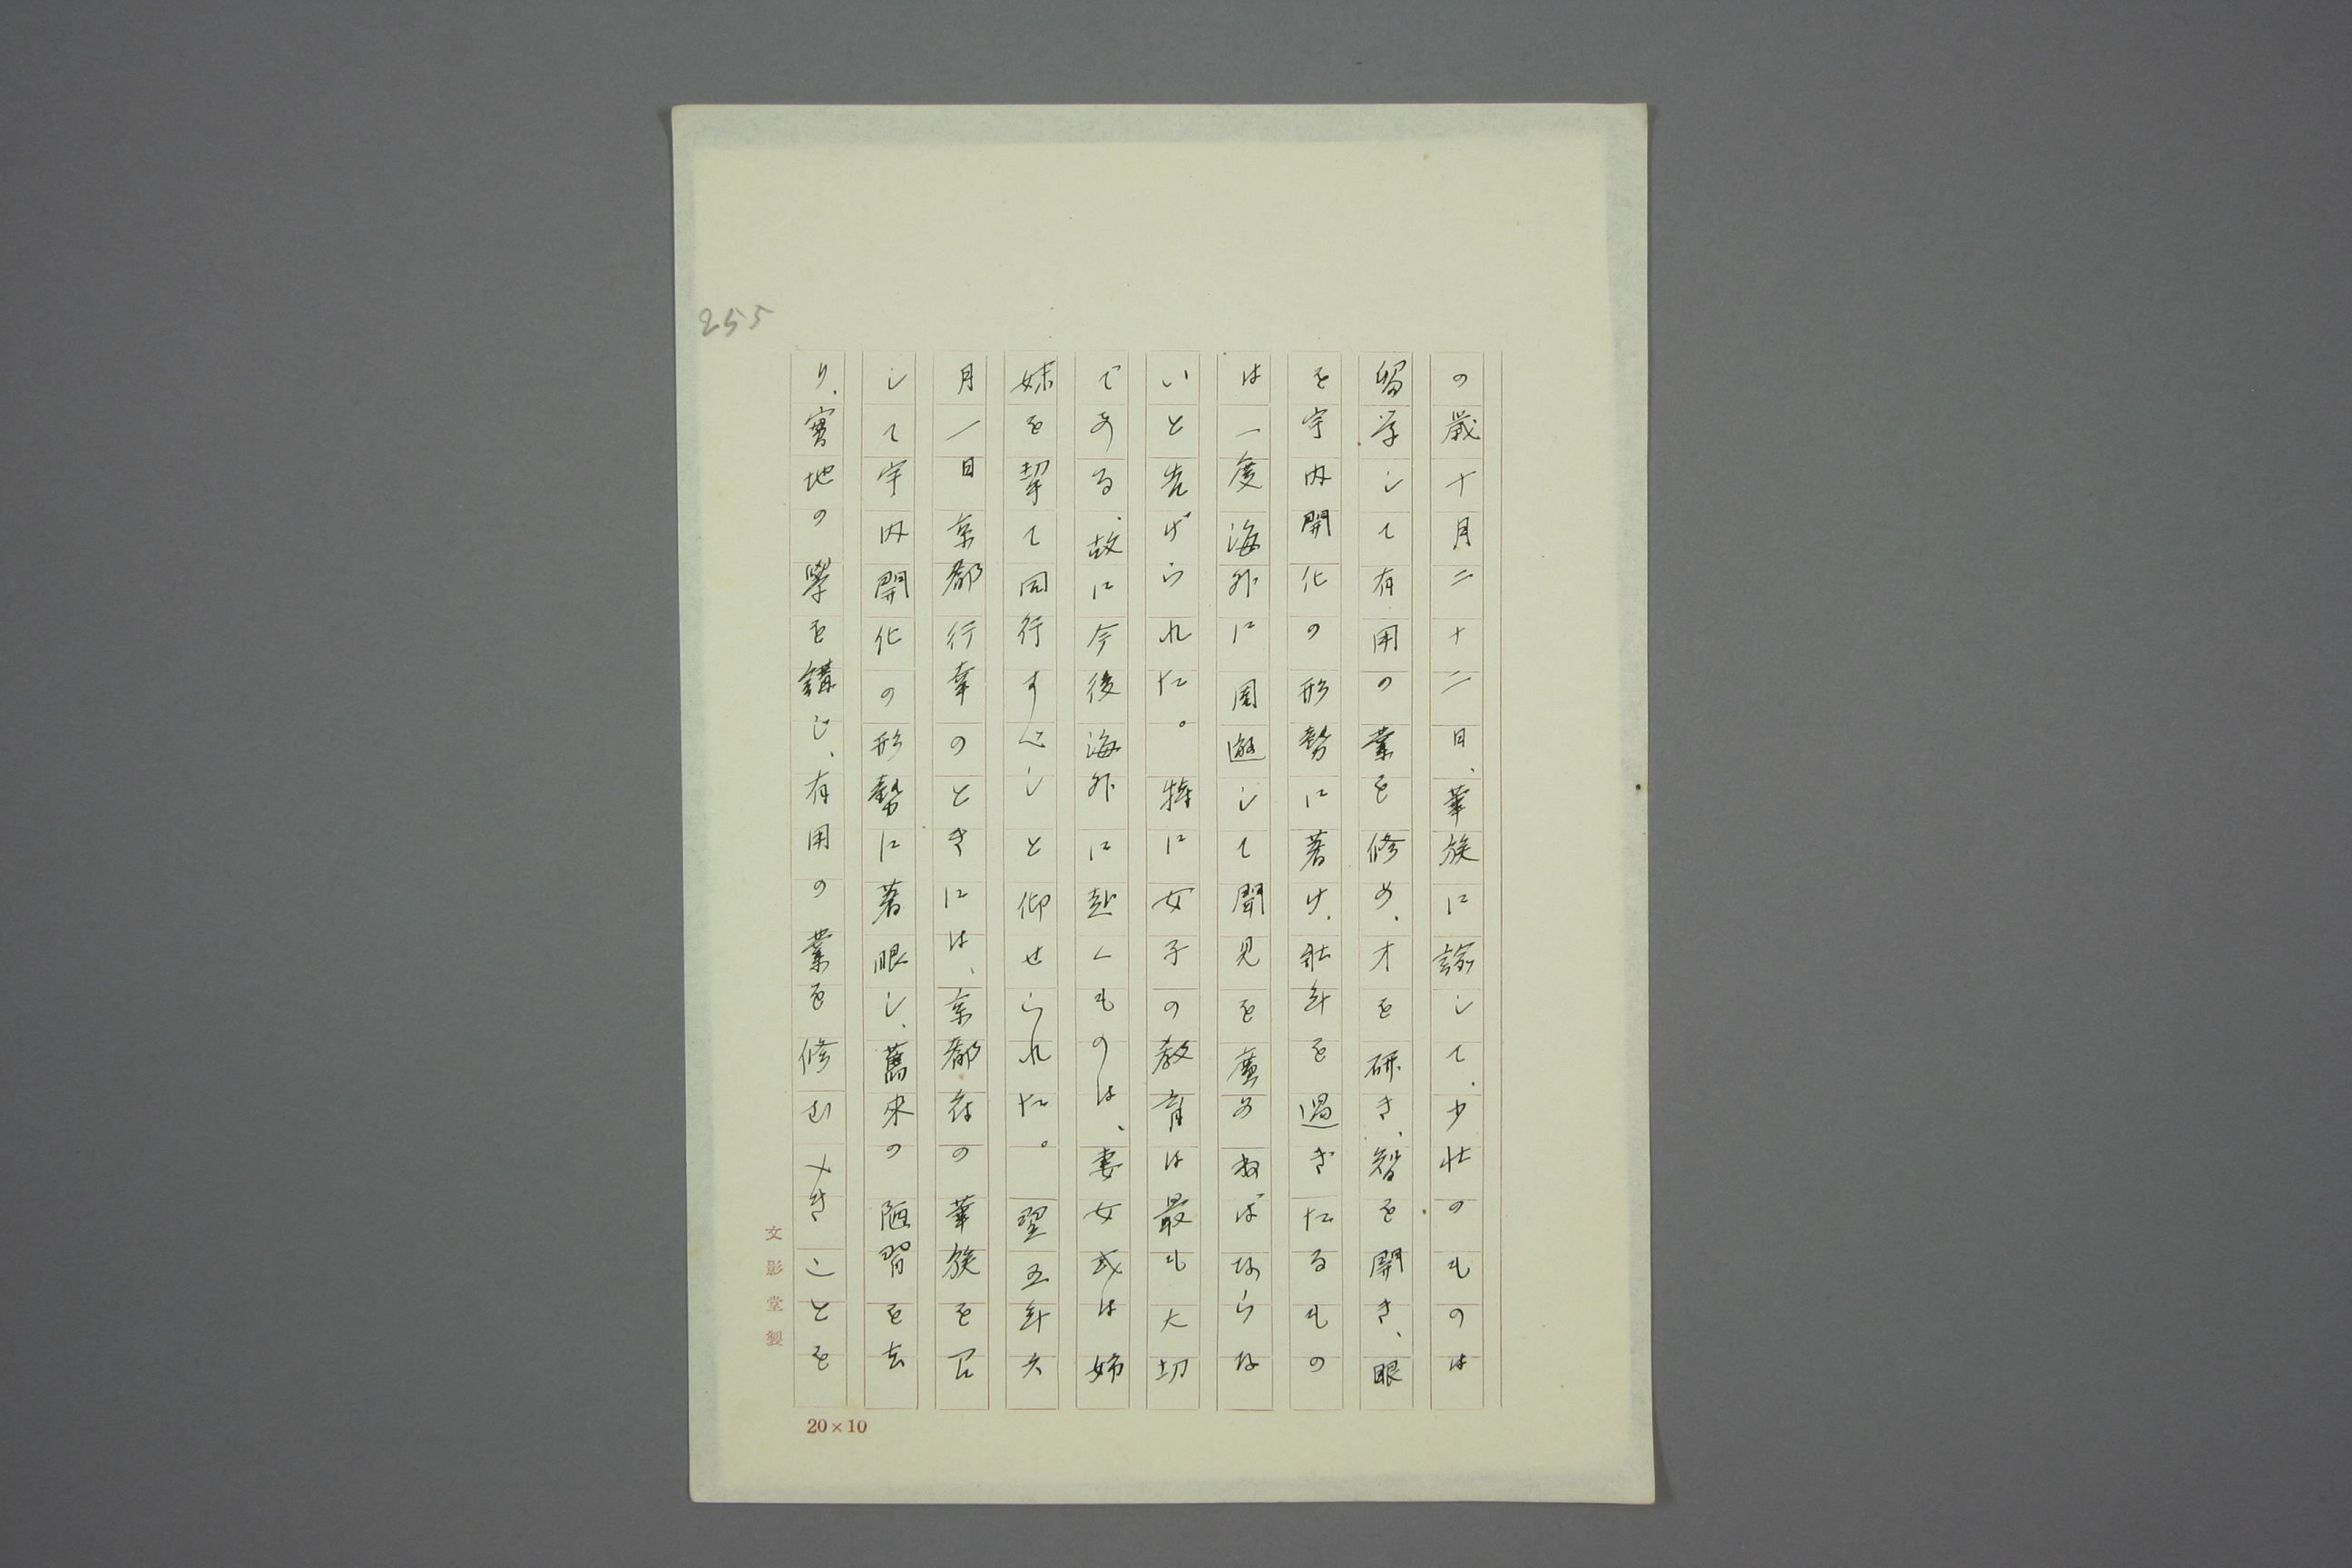 255
の歳十月二十二日、華族に諭して、少壮のものは
留学して有用の業を修め、才を研き、智を開き、眼
を宇内開化の形勢に著け、壮年を過ぎたるもの
は一度海外に周遊して聞見を廣めねばならな
いと告げられた。特に女子の教育は最も大切
である、故に今後海外に赴くものは、妻女或は姉
妹を挈て同行すべしと仰せられた。翌五年六
月一日京都行幸のときには、京都在の華族を召
して宇内開化の形勢に著眼し、舊来の陋習を去
り、實地の學を講じ、有用の業を修むべきことを
文影堂製
20×10